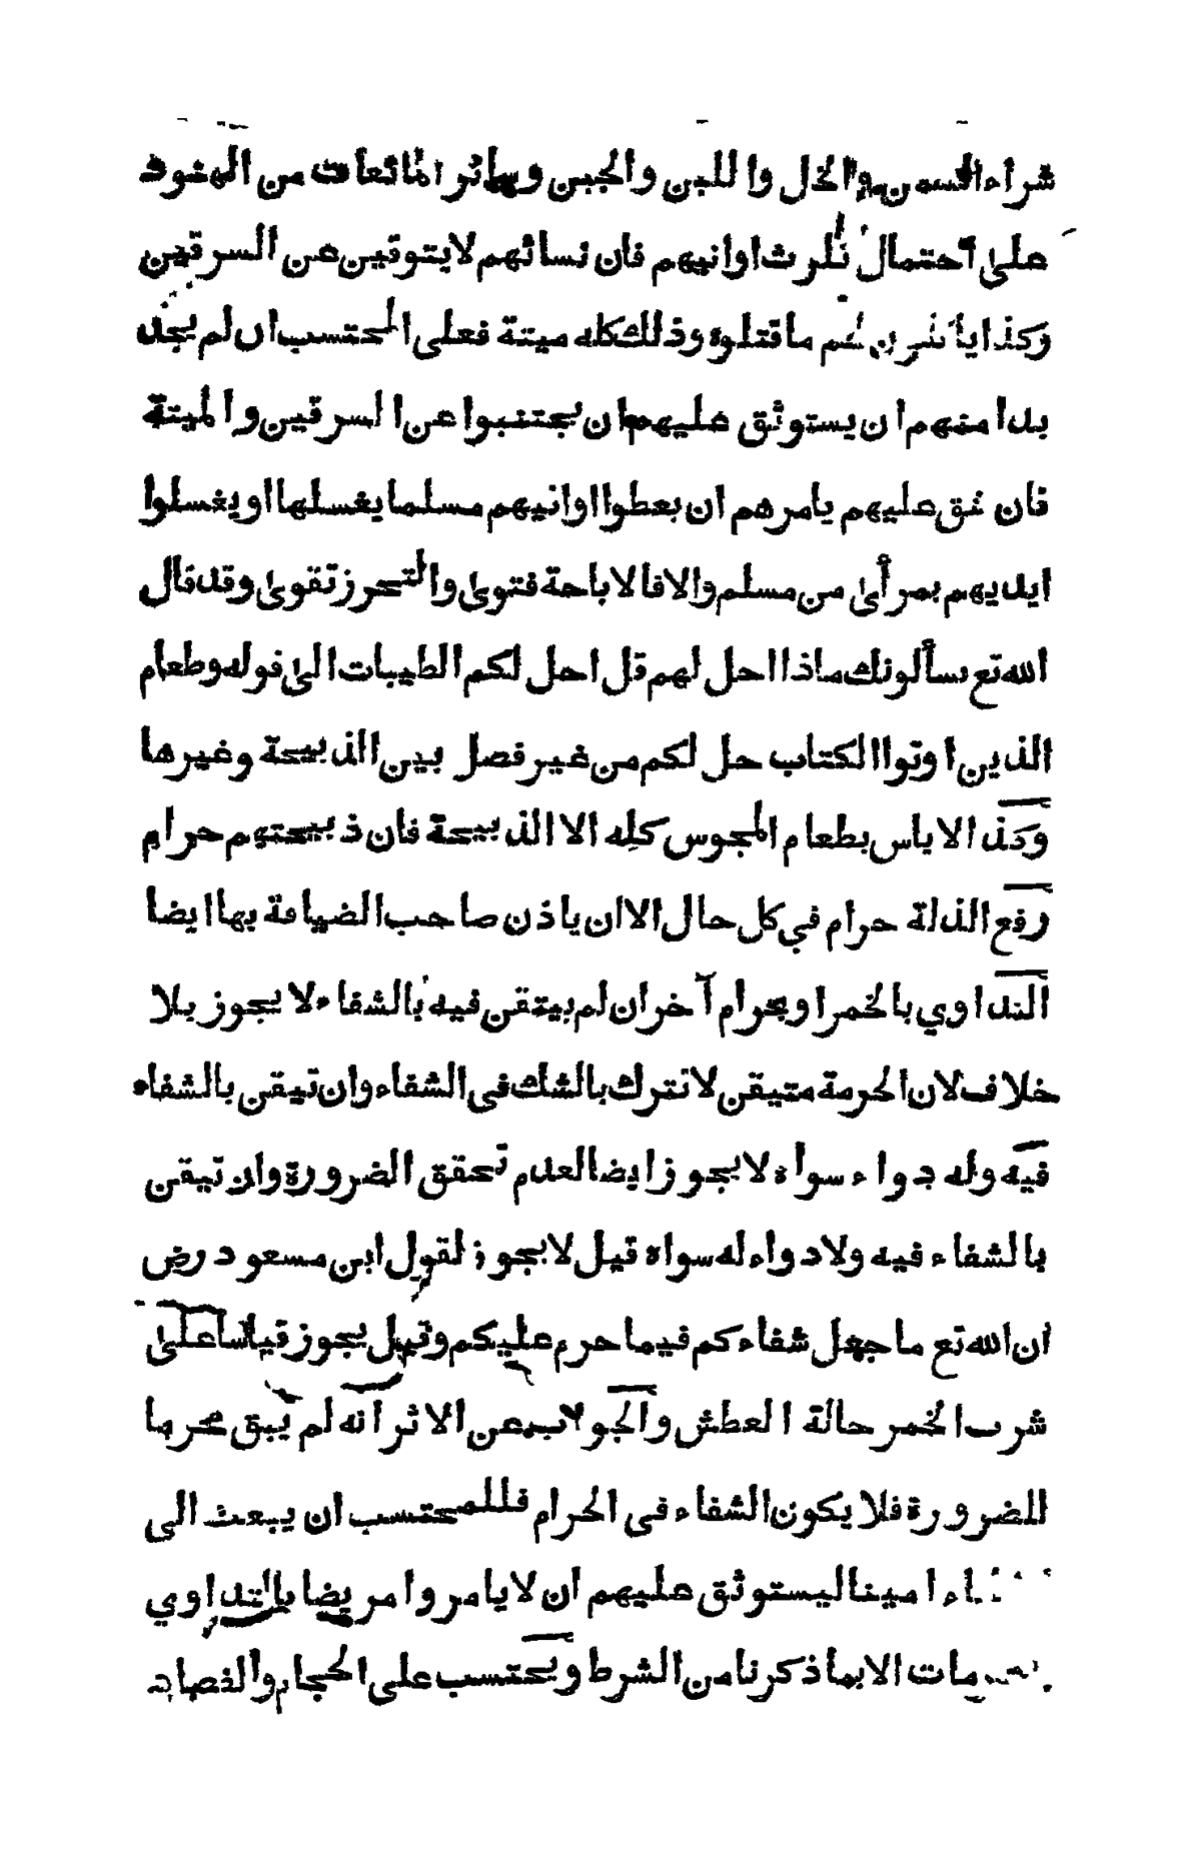 شراء السمن والخل واللبن والجبن وسائر المائعات من الهنود
على احتمال تلوث اوانيهم فان نسائهم لا يتوقين عن السرقين
وكذا ياكلون لحم ما قتلوه وذلك كله ميتة فعلى المحتسب ان لم يجد
بدا منهم ان يستوثق عليهم ان يجتنبوا عن السرقين والميتة
فان شق عليهم يامرهم ان يعطوا اوانيهم مسلما يغسلها او يغسلوا
ايديهم بمرأى من مسلم والا فالاباحة فتوى والتحرز تقوى وقد قال
الله تع يسألونك ماذا احل لهم قل احل لكم الطيبات الى قوله وطعام
الذين اوتوا الكتاب حل لكم من غير فصل بين الذبيحة وغيرها
وكذا لا باس بطعام المجوس كله الا الذبيحة فان ذبيحتهم حرام
رفع الذلة حرام في كل حال الا ان ياذن صاحب الضيافة بها ايضا
التداوي بالخمر او بحرام آخر ان لم يتيقن فيه بالشفاء لا يجوز بلا
خلاف لان الحرمة متيقن لا تترك بالشك في الشفاء وان تيقن بالشفاء
فيه وله دواء سواه لا يجوز ايضا لعدم تحقق الضرورة وان تيقن
بالشفاء فيه ولا دواء له سواه قيل لا يجوز لقول ابن مسعود رض
ان الله تع ما جعل شفاءكم فيما حرم عليكم وقيل يجوز قياسا على
شرب الخمر حالة العطش والجواب عن الاثر انه لم يبق محرما
للضرورة فلا يكون الشفاء في الحرام فللمحتسب ان يبعث الى
امينا ليستوثق عليهم ان لا يامروا مريضا بالتداوي
الا بما ذكرنا من الشرط ويحتسب على الحجام والفصاد